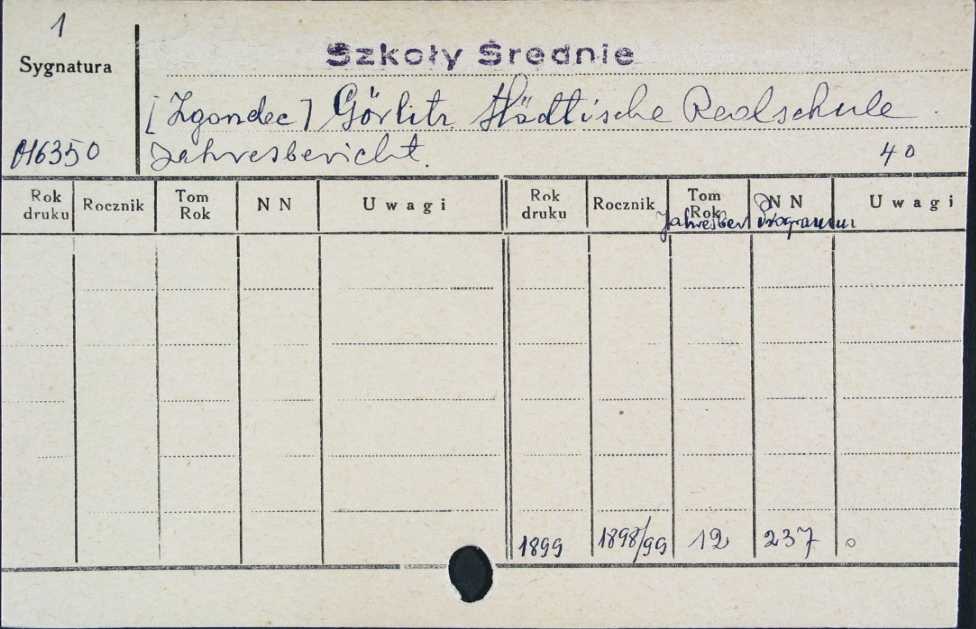 1
Szkoły Średnie
Sygnatura
[Zgorzelec] Görlitz Städtische Realschule
016350 Jahresbericht. 40
Rok druku Rocznik Tom Rok NN Uwagi Rok druku Rocznik Tom Rok NN Uwagi
Jahresber Programm
1899 1898/99 12 237 o